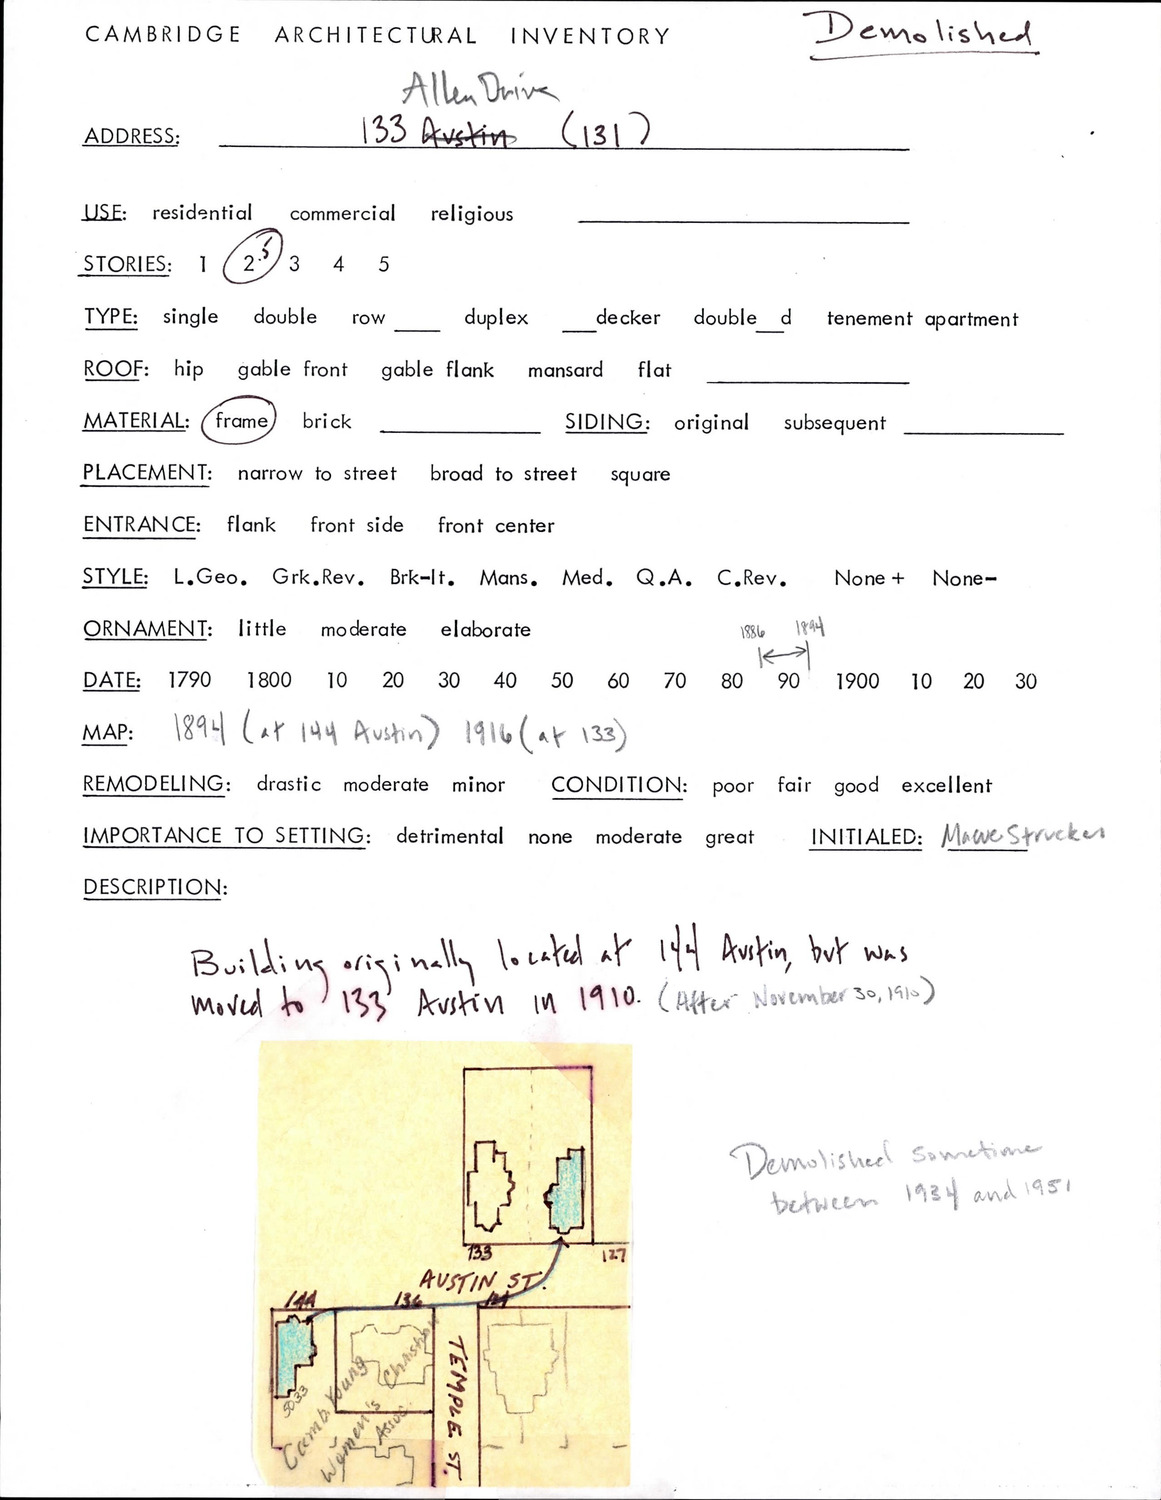 CAMBRIDGE ARCHITECTURAL INVENTORY Demolished
Allen Drive
ADDRESS: 133 Austin (131)
USE: residential commercial religious
STORIES: 1 2.5 3 4 5
TYPE: single double row ___ duplex ___decker double__d tenement apartment
ROOF: hip gable front gable flank mansard flat
MATERIAL: frame brick SIDING: original subsequent
PLACEMENT: narrow to street broad to street square
ENTRANCE: flank front side front center
STYLE: L.Geo. Grk.Rev. Brk-It. Mans. Med. Q.A. C.Rev. None+ None-
ORNAMENT: little moderate elaborate 1886 1894
DATE: 1790 1800 10 20 30 40 50 60 70 80 90 1900 10 20 30
MAP: 1894 (at 144 Austin) 1916 (at 133)
REMODELING: drastic moderate minor CONDITION: poor fair good excellent
IMPORTANCE TO SETTING: detrimental none moderate great INITIALED:
DESCRIPTION:
Building originally located at 144 Austin, but was
moved to 133 Austin in 1910. (After November 30, 1910)
Demolished sometime
between 1934 and 1951
133 127
AUSTIN ST.
144 136
TEMPLE ST.
5033
Camb. Young
Women's Christian
Assoc.